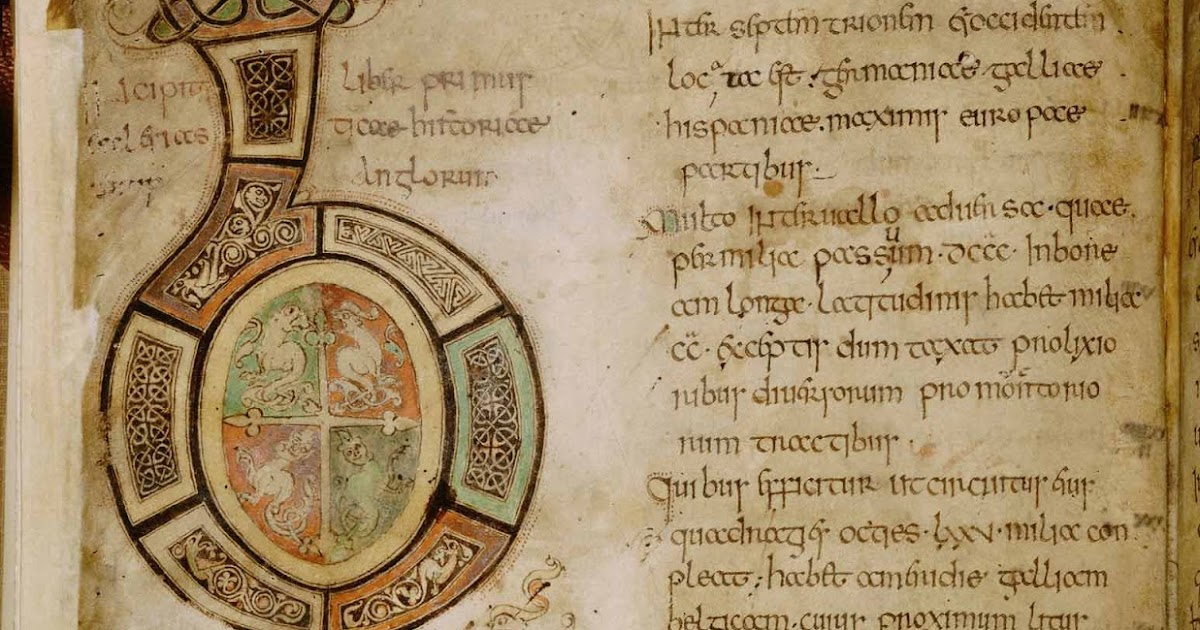 Incipit liber primus
eclesias ticae historiae
Anglorum
inter septemtrionem et occidentem
locata est · germaniae · galliae
hispaniae · maximis europae
partibus ·
Multo interuallo aduersa · quae
per milia passuum · dccc · in bore
am longa · latitudinis habet milia
cc · exceptis dum taxat prolixio
ribus diuersorum promontorio
rum tractibus ·
Quibus efficitur ut circuitus eius
quadragies octies · lxxv · milia con
pleat ; habet a meridie galliam
belgicam · cuius proximum litus